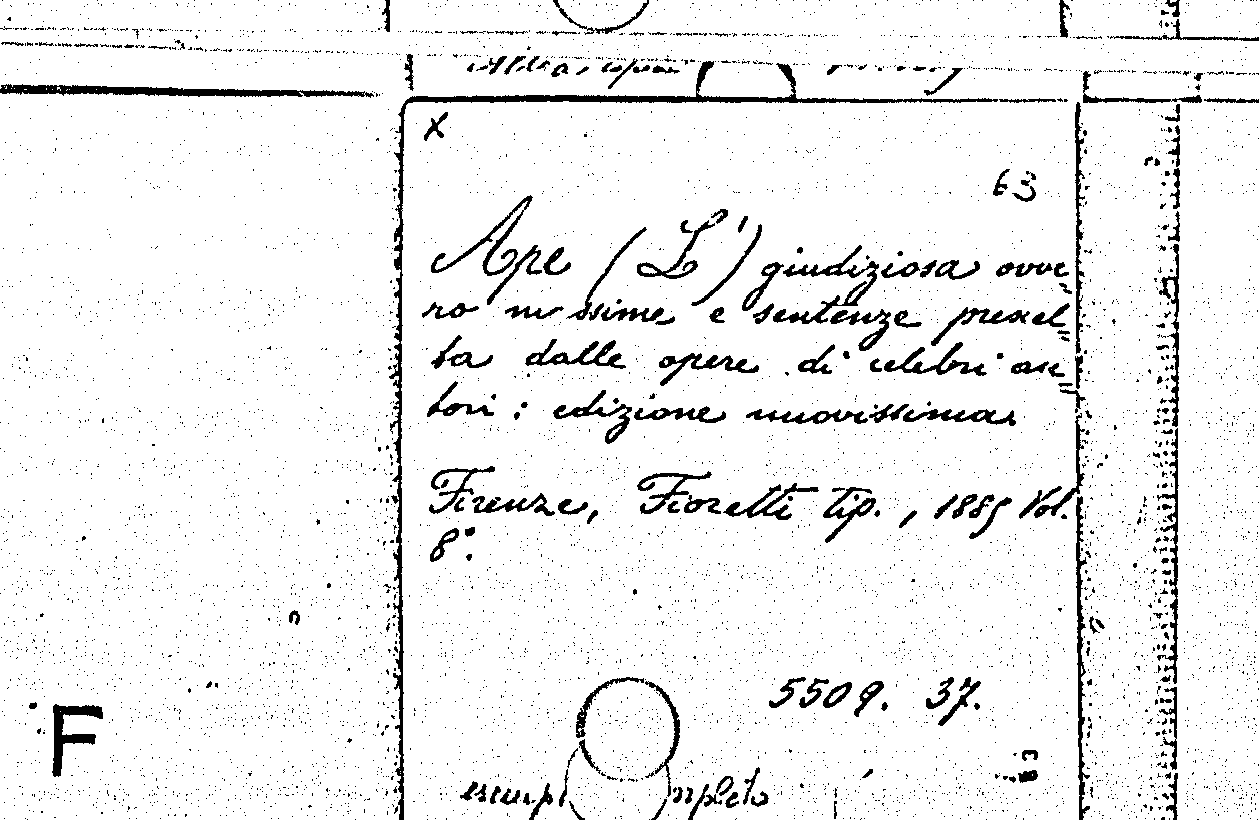 x
63
Ape (L') giudiziosa ovve
ro massime e sentenze prescel
ta dalle opere di celebri au
tori : edizione nuovissima.
Firenze, Fioretti tip. , 1885 Vol.
8°.
5509. 37.
F